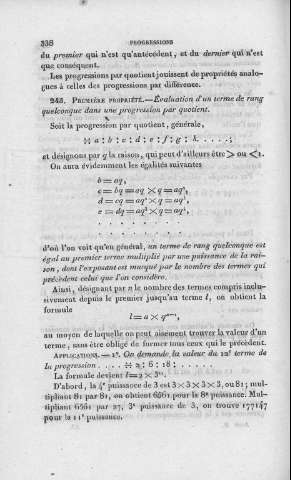 338 PROGRESSIONS
du premier qui n'est qu'antécédent, et du dernier qui n'est
que conséquent.
Les progressions par quotient jouissent de propriétés analo-
gues à celles des progressions par différence.
245. PREMIÈRE PROPRIÉTÉ.—Évaluation d'un terme de rang
quelconque dans une progression par quotient.
Soit la progression par quotient, générale,
∺ a : b : c : d : e : f : g : h . . . . . ;
et désignons par q la raison, qui peut d'ailleurs être > ou < 1.
On aura évidemment les égalités suivantes
b = aq,
c = bq = aq × q = aq²,
d = cq = aq² × q = aq³,
e = dq = aq³ × q = aq⁴,
. . . . . . . . . .
d'où l'on voit qu'en général, un terme de rang quelconque est
égal au premier terme multiplié par une puissance de la rai-
son, dont l'exposant est marqué par le nombre des termes qui
précèdent celui que l'on considère.
Ainsi, désignant par n le nombre des termes compris inclu-
sivement depuis le premier jusqu'au terme l, on obtient la
formule
l = a × qⁿ⁻¹,
au moyen de laquelle on peut aisément trouver la valeur d'un
terme, sans être obligé de former tous ceux qui le précèdent.
APPLICATIONS. — 1°. On demande la valeur du 12ᵉ terme de
la progression . . . . ∺ 2 : 6 : 18 : . . . . .
La formule devient l = 2 × 3¹¹.
D'abord, la 4ᵉ puissance de 3 est 3 × 3 × 3 × 3, ou 81; mul-
tipliant 81 par 81, on obtient 6561 pour la 8ᵉ puissance. Mul-
tipliant 6561 par 27, 3ᵉ puissance de 3, on trouve 177147
pour la 11ᵉ puissance.